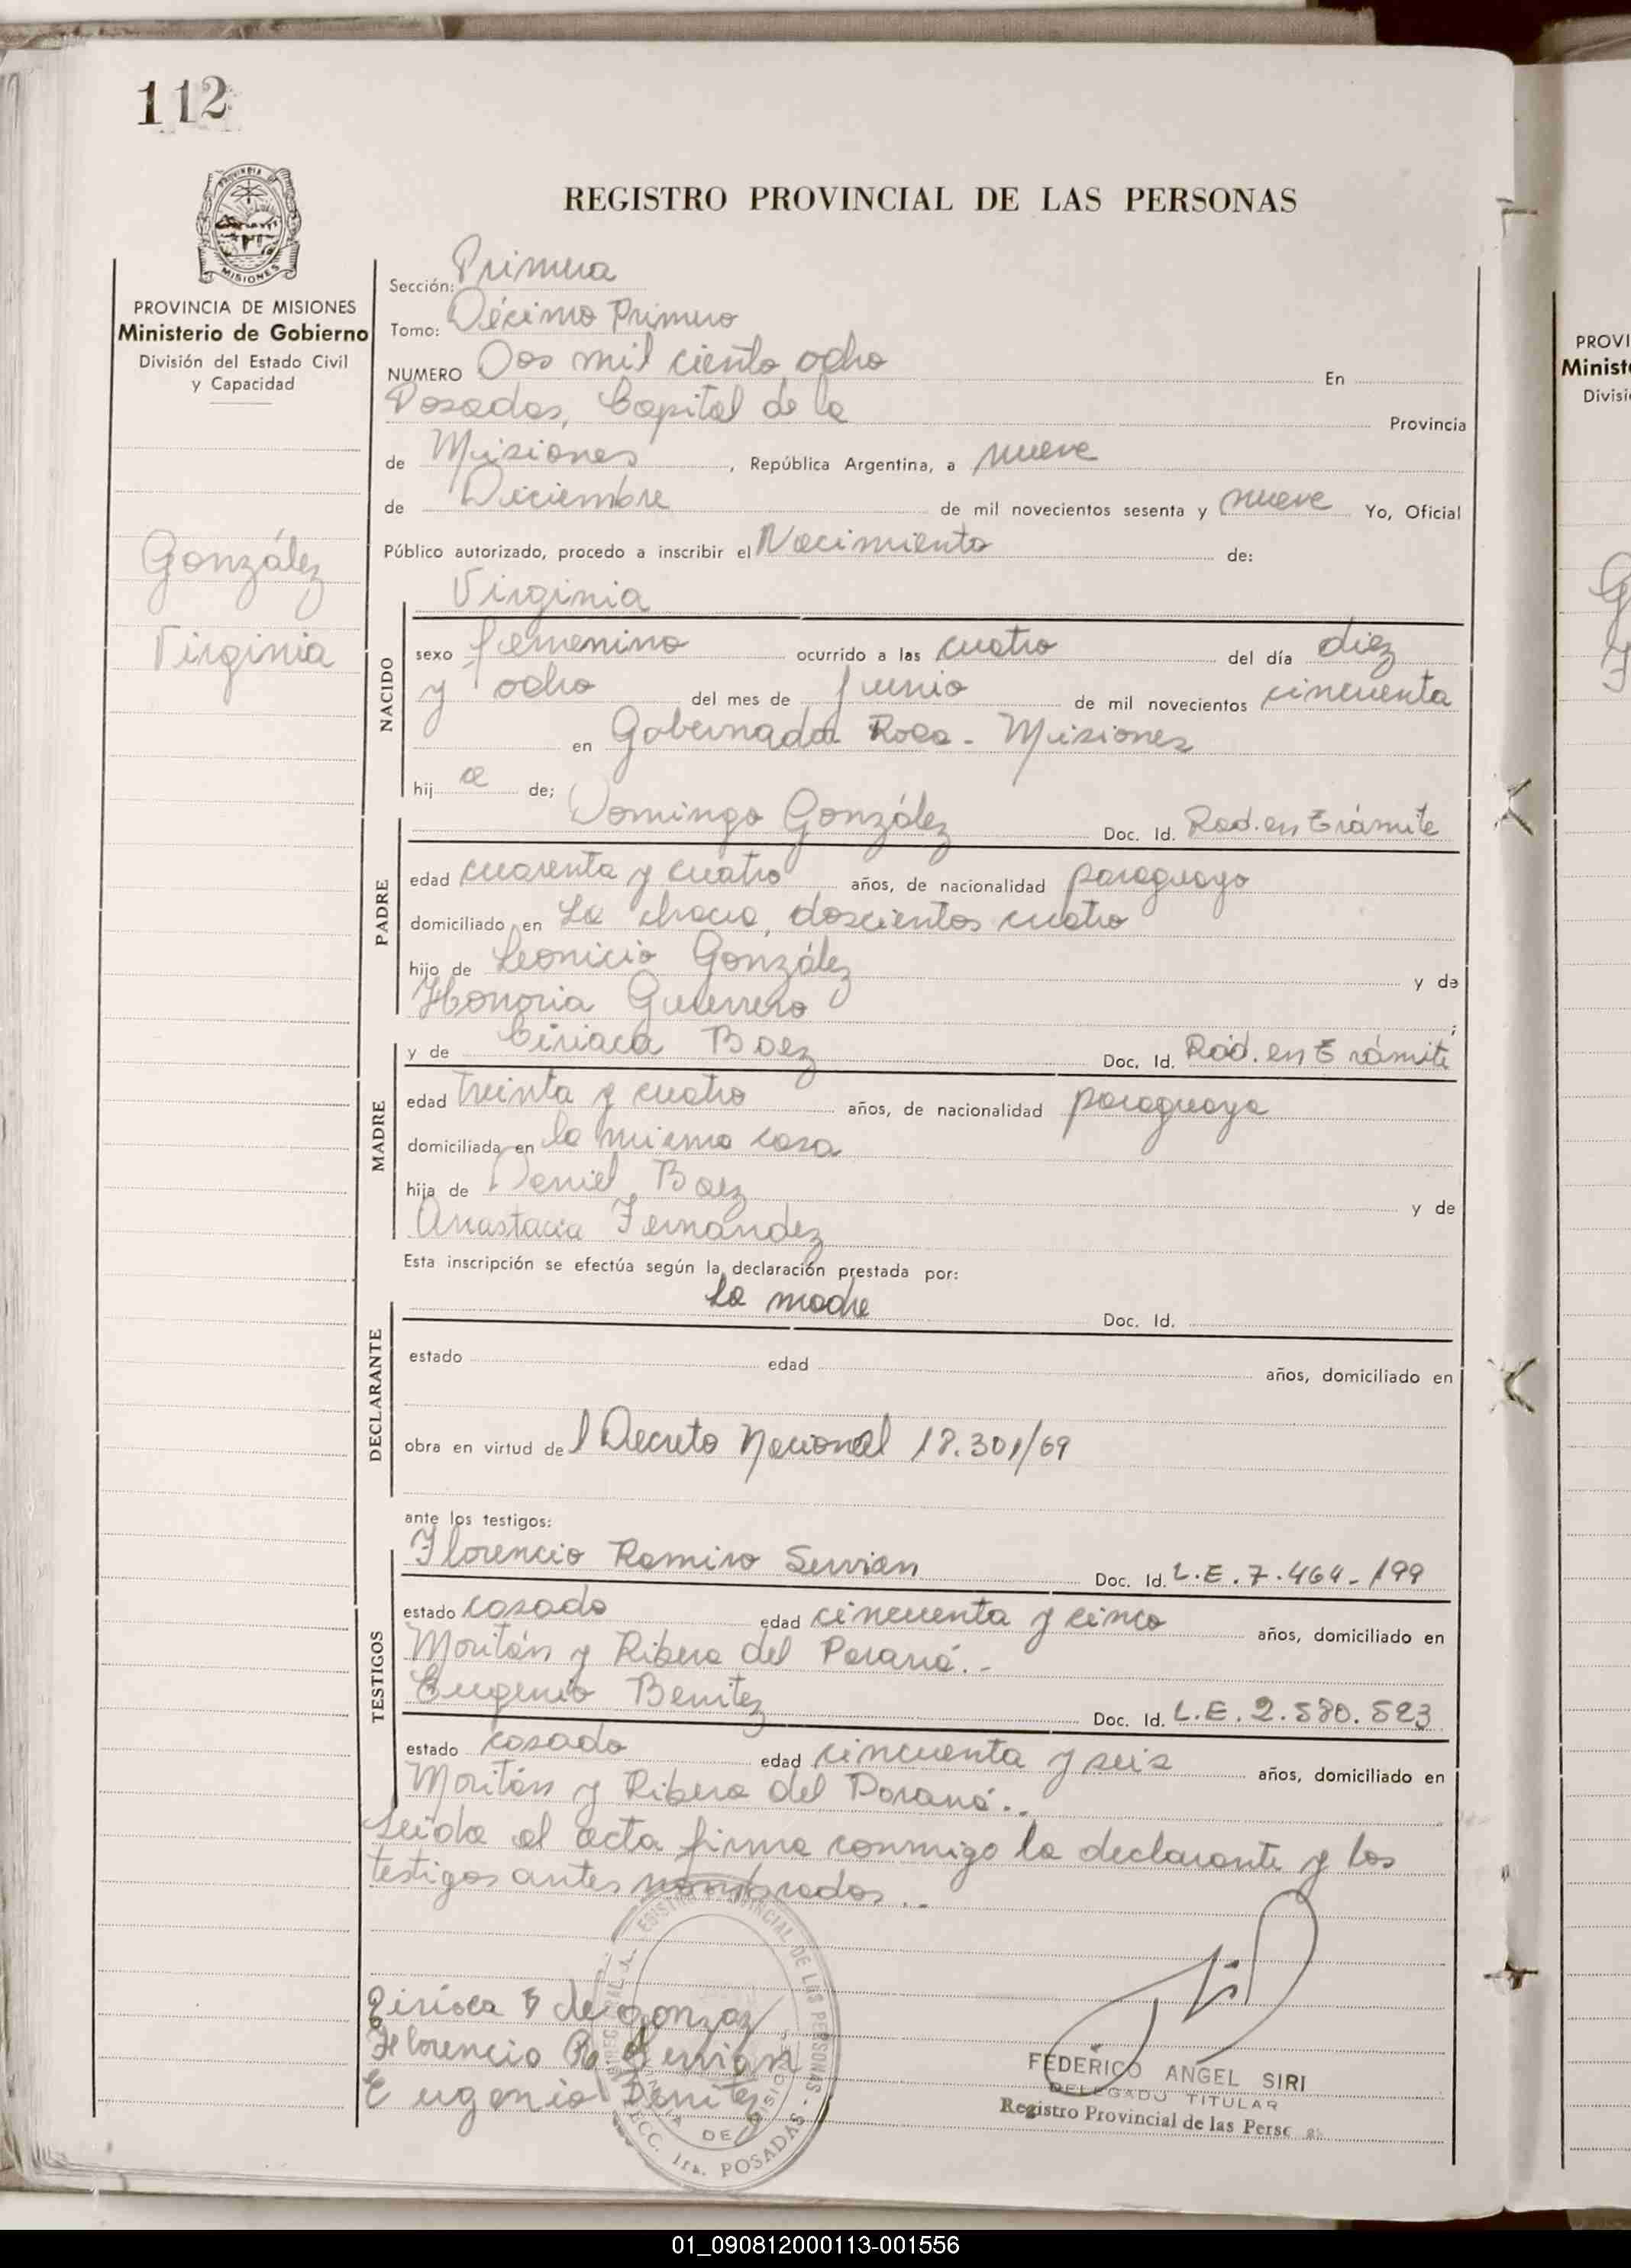 112
PROVINCIA DE MISIONES
Ministerio de Gobierno
División del Estado Civil
y Capacidad
González
Virginia
REGISTRO PROVINCIAL DE LAS PERSONAS
Sección: Primera
Tomo: Décimo Primero
NUMERO Dos mil ciento ocho En
Posadas, Capital de la Provincia
de Misiones, República Argentina, a nueve
de Diciembre de mil novecientos sesenta y nueve Yo, Oficial
Público autorizado, procedo a inscribir el Nacimiento de:
Virginia
NACIDO
sexo femenino ocurrido a las cuatro del día diez
y ocho del mes de junio de mil novecientos cincuenta
en Gobernador Roca - Misiones
hij a de;
PADRE
Domingo González Doc. Id. Rad. en Trámite
edad cuarenta y cuatro años, de nacionalidad paraguayo
domiciliado en La chacra, doscientos cuatro
hijo de Leonicio González y de
Honoria Guerrero ;
MADRE
y de Ciriaca Baez Doc. Id. Rad. en Trámite
edad treinta y cuatro años, de nacionalidad paraguaya
domiciliada en la misma casa
hija de Daniel Baez y de
Anastacia Fernández
Esta inscripción se efectúa según la declaración prestada por:
DECLARANTE
la madre Doc. Id.
estado edad años, domiciliado en
obra en virtud de l Decreto Nacional 18.301/69
ante los testigos:
TESTIGOS
Florencio Ramiro Servian Doc. Id. L.E. 7.464-199
estado casado edad cincuenta y cinco años, domiciliado en
Moritán y Ribera del Paraná.-
Eugenio Benitez Doc. Id. L.E. 2.580.523
estado casado edad cincuenta y seis años, domiciliado en
Moritán y Ribera del Paraná..
Leida el acta firma conmigo la declarante y los
testigos antes nombrados..-
Ciriaca B de gonzaz
Florencio R. Servian
Eugenio Benitez
REGISTRO PROVINCIAL DE LAS PERSONAS - SECC. 1ra. POSADAS
FEDERICO ANGEL SIRI
DELEGADO TITULAR
Registro Provincial de las Pers
PROVI
Minist
Divisi
01_090812000113-001556